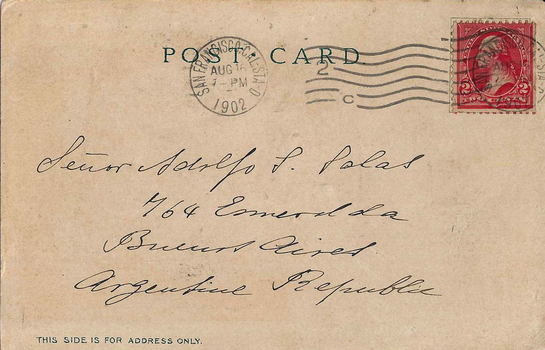 POST CARD
SAN FRANCISCO, CAL. STA. D
AUG
7-PM
1902
2
C
2 2
Señor Adolfo S. Salas
764 Esmeralda
Buenos Aires
Argentine Republic
THIS SIDE IS FOR ADDRESS ONLY.